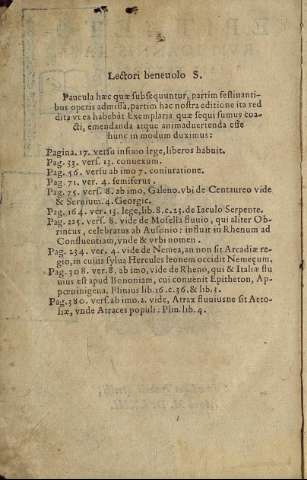 Lectori beneuolo S.
Paucula hæc quæ subsequuntur, partim festinanti-
bus operis admissa, partim hac nostra editione ita red
dita vt ea habebāt Exemplaria quæ sequi sumus coa-
cti, emendanda atque animaduertenda esse
hunc in modum duximus:
Pagina. 17. versu infimo lege, liberos habuit.
Pag. 53. vers. 13. conuexum.
Pag. 56. versu ab imo 7. coniuratione.
Pag. 71. ver. 4. semiferus.
Pag. 75. vers. 8. ab imo, Galeno. vbi de Centaureo vide
& Seruium. 4. Georgic.
Pag. 164. ver. 13. lege, lib. 8. c. 23. de Iaculo Serpente.
Pag. 225. vers. 8. vide de Mosella fluuio, qui aliter Ob-
rincus, celebratus ab Ausonio: influit in Rhenum ad
Confluentiam, vnde & vrbi nomen.
Pag. 234. ver. 4. vide de Nemea, an non sit Arcadiæ re-
gio, in cuius sylua Hercules leonem occidit Nemęum.
Pag. 308. ver. 8. ab imo, vide de Rheno, qui & Italiæ flu
uius est apud Bononiam, cui conuenit Epitheton, Ap-
pœninigena. Plinius lib. 16. c. 36. & lib. 3.
Pag. 380. vers. ab imo. 2. vide, Atrax fluuiusne sit Aeto-
liæ, vnde Atraces populi: Plin. lib. 4.